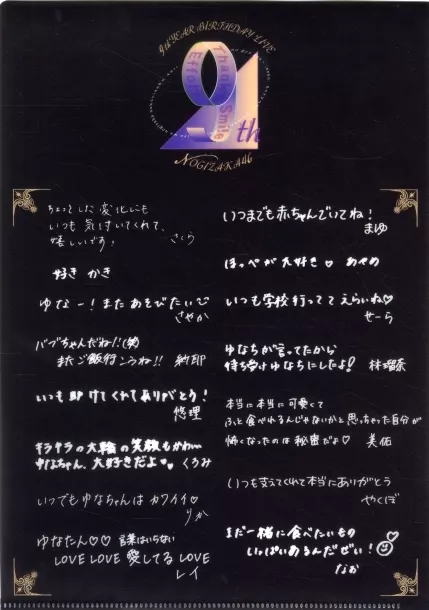 9th YEAR BIRTHDAY LIVE
9th
Thanks
Smile
NOGIZAKA46
ちょっとした変化にも
いつも気付いてくれて、
嬉しいです! さくら
好き かき
ゆなー!またあそびたい
さやか
バブちゃんだね!(笑)
またご飯行こうね!!
いつも助けてくれてありがとう!
悠理
キラキラの大輪の笑顔もかわいい
ゆなちゃん、大好きだよ♥♥ くるみ
いつでもゆなちゃんは カワイイ♡
りか
ゆなたん♡♡ 言葉はいらない
LOVE LOVE 愛してる LOVE
レイ
いつまでも赤ちゃんでいてね!
まゆ
ほっぺが大好き♡ あやめ
いつも学校行ってて えらいね♡
せーら
ゆなちが言ってたから
待ち受けゆなちにしたよ! 林瑠奈
本当に本当に可愛くて
ふと食べれるんじゃないかと思っちゃった自分が
怖くなったのは秘密だよ♡ 美佑
いつも支えてくれて本当にありがとう
やくぼ
まだ一緒に食べたいもの
いっぱいあるんだぜい!
なお